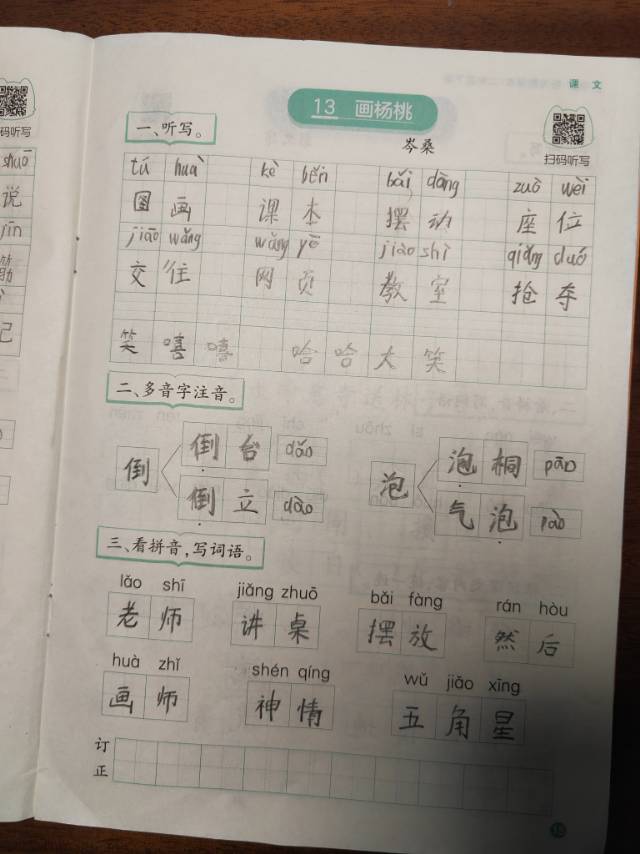 课 文
13 画杨桃
一、听写。
岑桑
扫码听写
tú huà kè běn bǎi dòng zuò wèi
图 画 课 本 摆 动 座 位
jiāo wǎng wǎng yè jiào shì qiǎng duó
交 往 网 页 教 室 抢 夺
笑 嘻 嘻 哈 哈 大 笑
二、多音字注音。
倒 倒 台 dǎo
倒 立 dào
泡 泡 桐 pāo
气 泡 pào
三、看拼音,写词语。
lǎo shī jiǎng zhuō bǎi fàng rán hòu
老 师 讲 桌 摆 放 然 后
huà zhǐ shén qíng wǔ jiǎo xīng
画 师 神 情 五 角 星
订
正
码听写
shuō
说
jīn
记